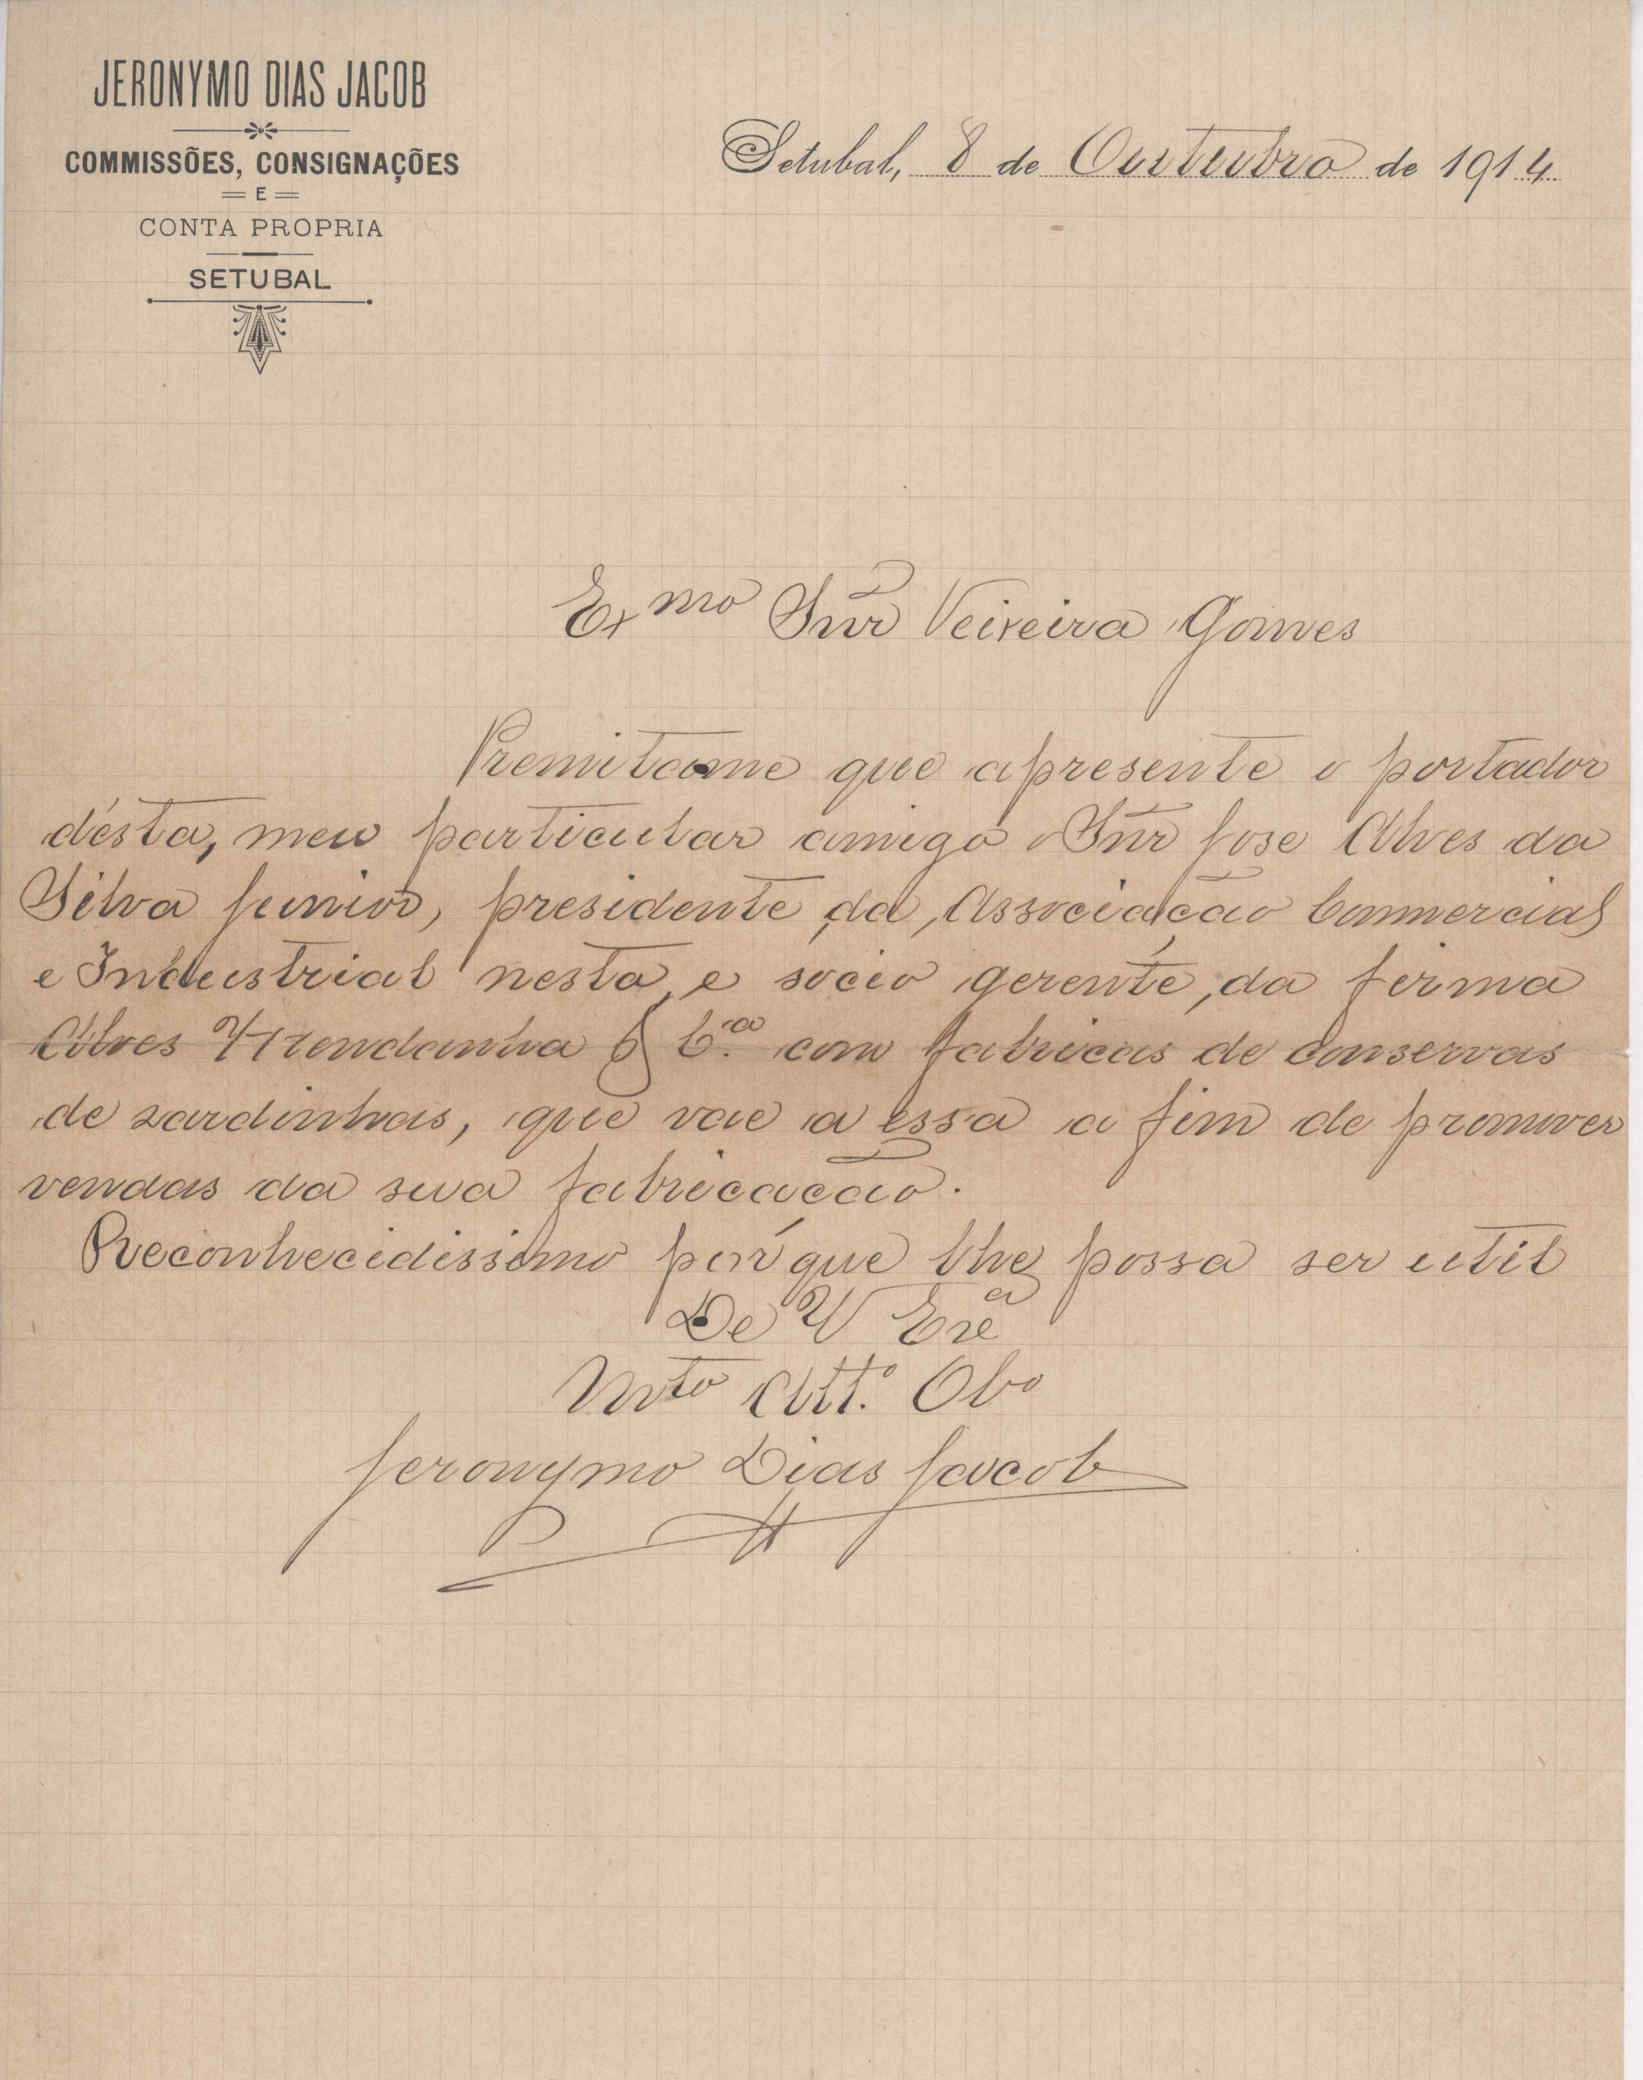 JERONYMO DIAS JACOB
COMMISSÕES, CONSIGNAÇÕES
E
CONTA PROPRIA
SETUBAL
Setubal, 8 de Outubro de 1914
Exmo Snr Teixeira Gomes
Premitame que apresente o portador
désta, meu particular amigo o Snr Jose Alves da
Silva Junior, presidente da Associação Commercial
e Industrial nesta, e socio gerente, da firma
Alves Mendanha & C.ª com fabricas de conservas
de sardinhas, que vae a essa a fim de promover
vendas da sua fabricação.
Reconhecidissimo por que lhe possa ser util
De V Exª
Mto Att.º Obo
Jeronymo Dias Jacob